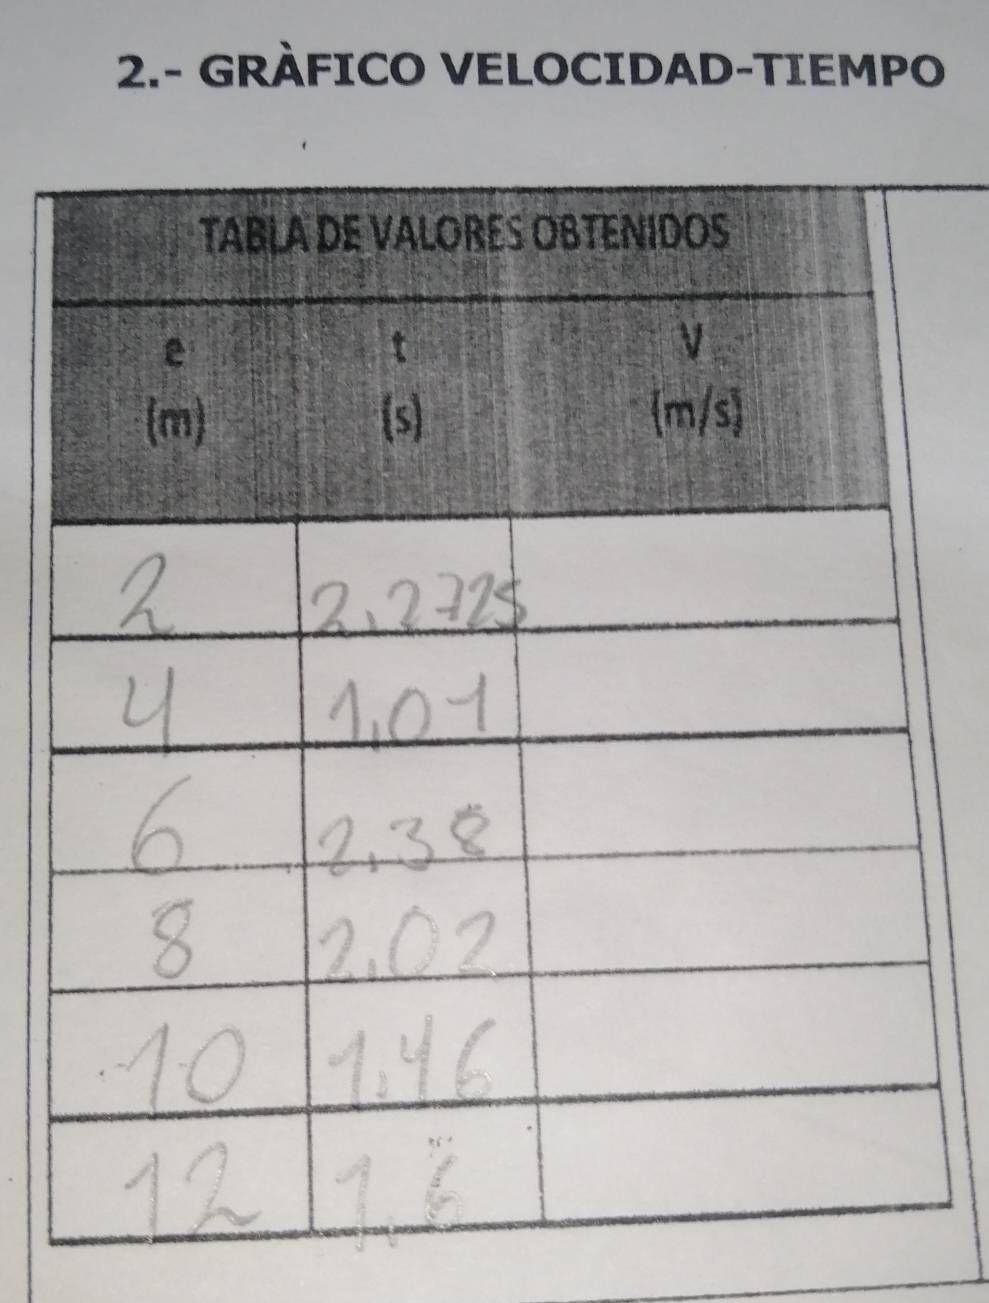 2.- GRÀFICO VELOCIDAD-TIEMPO
TABLA DE VALORES OBTENIDOS
e t V
(m) (s) (m/s)
2 2.2725
4 1,01
6 2.38
8 2.02
10 1.46
12